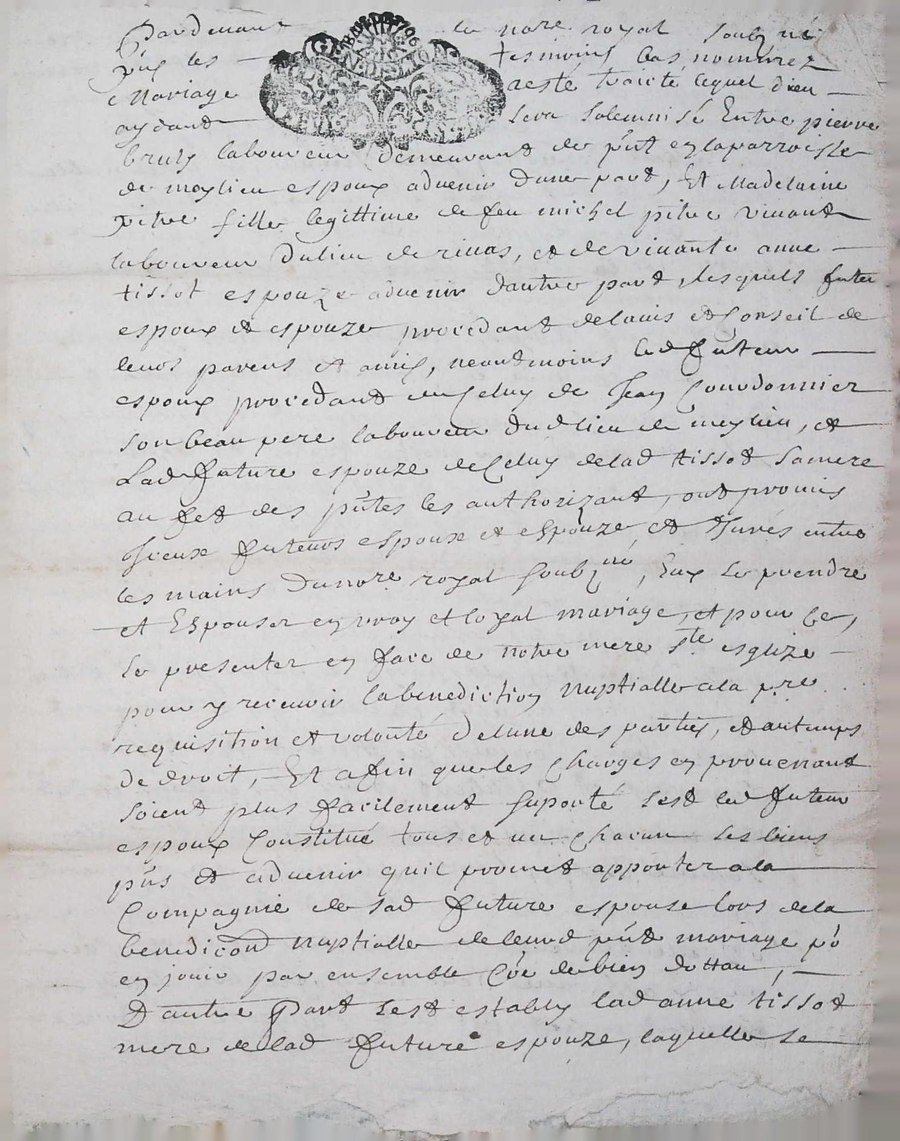 Pardevant le nore royal soubzné
GEN DE LION
pnt les tesmoins bas nommez
mariage a esté traité lequel dieu
aydant sera solemnisé Entre pierre
bruly laboureur demeurant de pnt en laparroisse
de moylieu espoux advenir dune part, Et Madelaine
pitre fille legittime de feu michel pitre vivant
laboureur dulieu de rivas, et de vivante anne
tissot espouze advenir dautre part, lesquels futur
espoux et espouze procedant delavis et Conseil de
leurs parens et amis, neantmoins led futeur
espoux procedant de Celuy de Jean Courdonnier
son beau pere laboureur dud lieu de meylieu, et
Lad future espouze de Celuy delad tissot sa mere
au fet des pntes les authorizant, ont promis
iceux futeurs espoux et espouze et Jurés entre
les mains du nore royal soubzné, Eux se prendre
et Espouser en vray et loyal mariage, et pour Ce,
se presenter en face de notre mere ste esglize
pour y recevoir la benediction nuptialle a la pre
requisition et volonté delune des parties, et autemps
de droit, Et afin que les Charges en provenant
soient plus facilement suporté sest led futeur
espoux Constitué tous et un chacun ses biens
pns et advenir quil promet apporter a la
Compagnie de sad future espouse lors de la
benedicon nuptialle de leurd pnt mariage po
en jouir par ensemble Coe de bien dottau,
Dautre part sest estably lad anne tissot
mere de lad future espouze, laquelle se